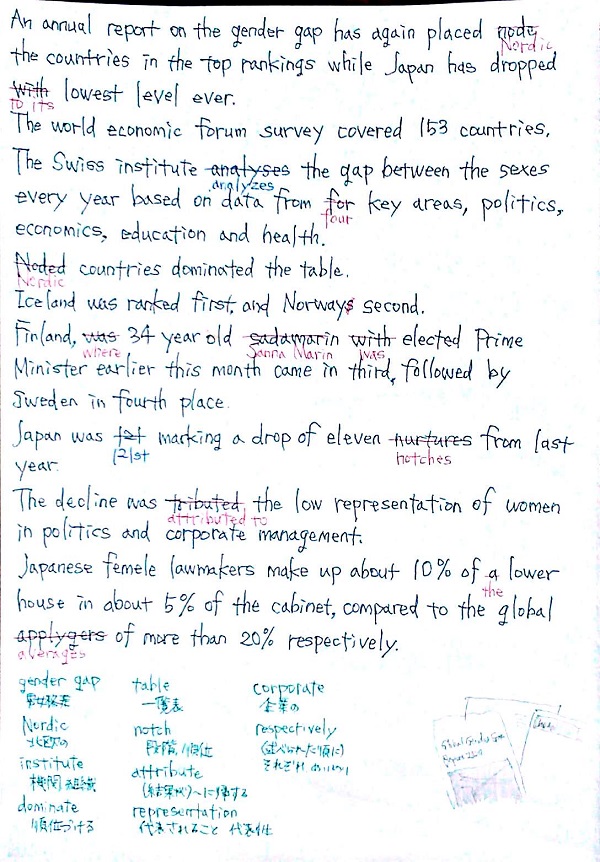 An annual report on the gender gap has again placed nody
Nordic
the countries in the top rankings while Japan has dropped
with lowest level ever.
to its
The world economic forum survey covered 153 countries.
The Swiss institute analyses the gap between the sexes
analyzes
every year based on data from for key areas, politics,
four
economics, education and health.
Noded countries dominated the table.
Nordic
Iceland was ranked first, and Norways second.
Finland, was 34 year old sadamarin with elected Prime
where Sanna Marin was
Minister earlier this month came in third, followed by
Sweden in fourth place.
Japan was 1st marking a drop of eleven nurtures from last
121st notches
year.
The decline was tributed the low representation of women
attributed to
in politics and corporate management.
Japanese femele lawmakers make up about 10% of a lower
the
house in about 5% of the cabinet, compared to the global
applygers of more than 20% respectively.
averages
gender gap table corporate
男女格差 一覧表 企業の
Nordic notch respectively
北欧の 段階/順位 (述べられた順に)
institute attribute それぞれ
機関 組織 (結果が)~に帰する
dominate representation
順位づける 代表されること 代表性